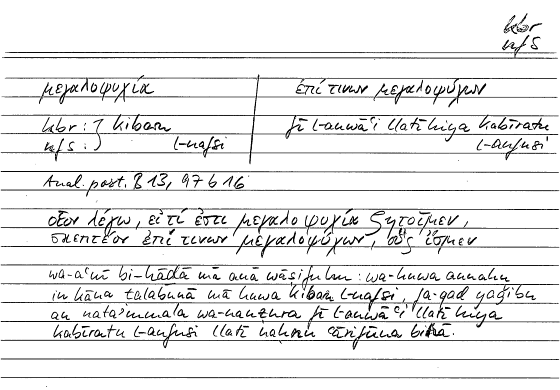 kbr
nfs
μεγαλοψυχία
ἐπί τινων μεγαλοψύχων
kbr : } kibaru
nfs : } l-nafsi
fī l-anwāʿi llatī hiya kabīratu
l-anfusi
Anal. post. B 13, 97 b 16
οἷον λέγω, εἰ τί ἐστι μεγαλοψυχία ζητοῖμεν,
σκεπτέον ἐπί τινων μεγαλοψύχων, οὓς ἴσμεν
wa-aʿnī bi-hādā mā anā wāṣifuhu : wa-huwa annahu
in kāna ṭalabunā mā huwa kibaru l-nafsi, fa-qad yaǧibu
an nataʾammala wa-nanẓura fī l-anwāʿi llatī hiya
kabīratu l-anfusi llatī naḥnu ʿārifūna bihā.